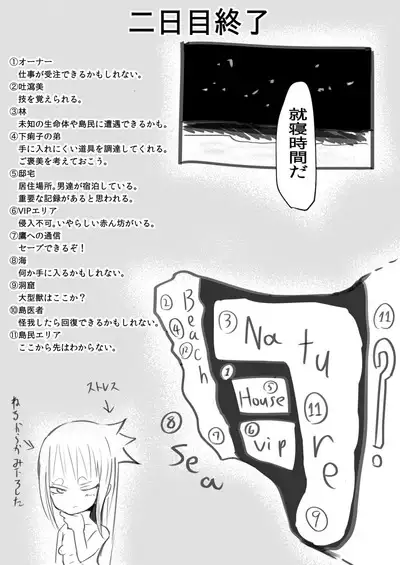 二日目終了
①オーナー
仕事が受注できるかもしれない。
②吐瀉美
技を覚えられる。
③林
未知の生命体や島民に遭遇できるかも。
④下痢子の弟
手に入れにくい道具を調達してくれる。
ご褒美を考えておこう。
⑤邸宅
居住場所。男達が宿泊している。
重要な記録があると思われる。
⑥VIPエリア
侵入不可。いやらしい赤ん坊がいる。
⑦鷹への通信
セーブできるぞ!
⑧海
何か手に入るかもしれない。
⑨洞窟
大型獣はここか?
⑩島医者
怪我したら回復できるかもしれない。
⑪島民エリア
ここから先はわからない。
就寝時間だ
② Beach
④
⑦
⑧ Sea
③ Nature
① 
⑤ House
⑥ vip
⑪
⑨
⑪ ?
ストレス